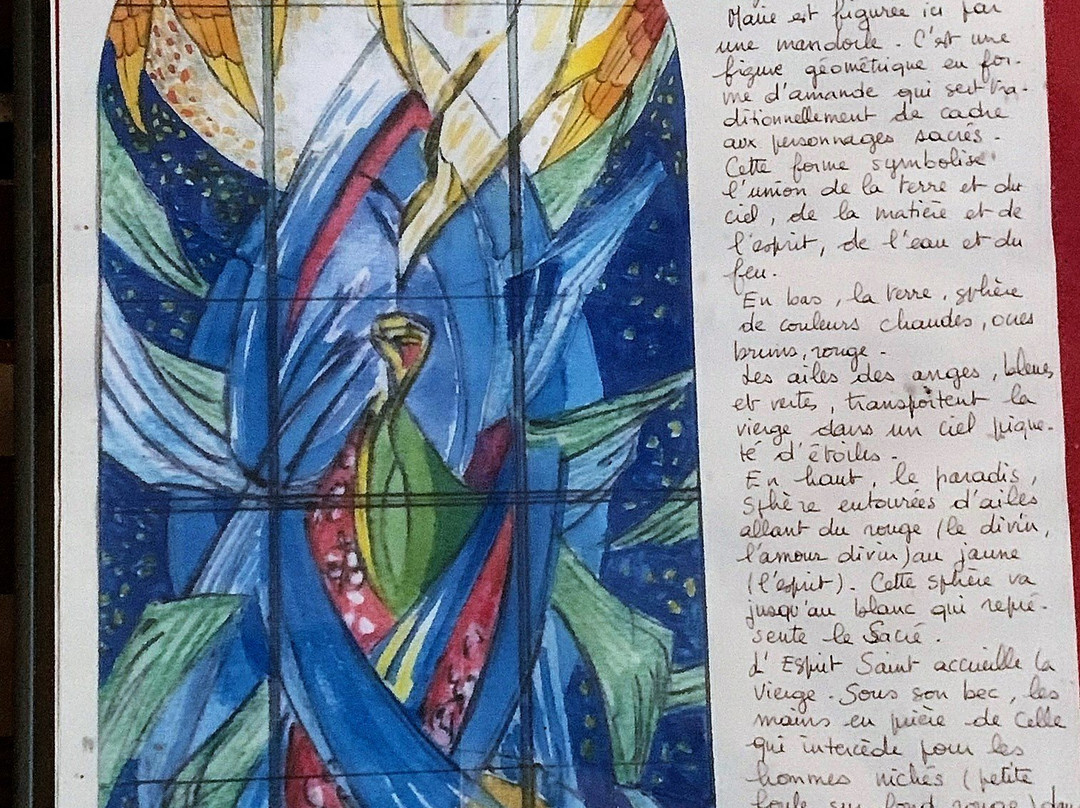 Marie est figurée ici par
une mandorle. C'est une
figure géométrique en for-
me d'amande qui sert tra-
ditionnellement de cadre
aux personnages sacrés.
Cette forme symbolise
l'union de la terre et du
ciel, de la matière et de
l'esprit, de l'eau et du
feu.
En bas, la terre, sphère
de couleurs chaudes, ocres
bruns, rouge.
Les ailes des anges, bleues
et vertes, transportent la
vierge dans un ciel pique-
té d'étoiles.
En haut, le paradis,
sphère entourées d'ailes
allant du rouge (le divin,
l'amour divin) au jaune
(l'esprit). Cette sphère va
jusqu'au blanc qui repré-
sente le Sacré.
L'Esprit Saint accueille la
Vierge. Sous son bec, les
mains en prière de Celle
qui intercède pour les
hommes nichés (petite
foule sur fond rouge) dan